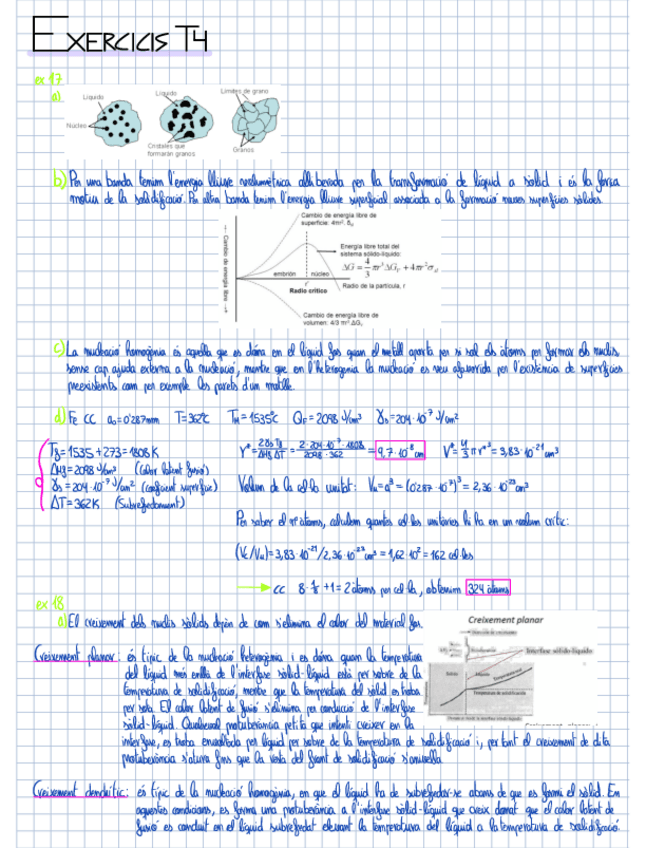 EXERCICIS T4
ex 17
a)
Líquido
Líquido
Límites de grano
Núcleo
Cristales que
formarán granos
Granos
b) Per una banda tenim l'energia lliure volumètrica alliberada per la transformació de líquid a sòlid i és la força
motriu de la solidificació. Per altra banda tenim l'energia lliure superficial associada a la formació noves superfícies sòlides.
Cambio de energía libre de
superficie: 4πr², δsl
Cambio de energía libre
Energía libre total del
sistema sólido-líquido:
ΔG = 4/3 πr³ΔGv + 4πr²σsl
embrión
núcleo
r*
Radio crítico
Radio de la partícula, r
Cambio de energía libre de
volumen: 4/3 πr³.ΔGv
c) La nucleació homogènia és aquella que es dóna en el líquid fos quan el metall aporta per si sol els àtoms per formar els nuclis
sense cap ajuda externa a la nucleació, mentre que en l'heterogènia la nucleació es veu afavorida per l'existència de superfícies
preexistents com per exemple les parets d'un motlle.
d) Fe CC a₀=0'287nm T=362ºC TM=1535ºC QF=2098 J/cm³ γ₀=204·10⁻⁷ J/cm²
Tf=1535+273=1808K
r*= 2γsTf/ΔHfΔT = 2·204·10⁻⁷·1808/2098·362 = 9,7·10⁻⁸cm
V*= 4/3 π r*³ = 3,83·10⁻²¹ cm³
ΔHf=2098 J/cm³ (Calor latent fusió)
γs=204·10⁻⁷J/cm² (coeficient superfície)
Volum de la cel·la unitat: Vu=a³=(0'287·10⁻⁷)³=2,36·10⁻²³cm³
ΔT=362K (Subrefredament)
Per saber el nº àtoms, calculem quantes cel·les unitàries hi ha en un volum crític:
(Vc/Vu)=3,83·10⁻²¹/2,36·10⁻²³cm³=1,62·10²=162 cel·les
→ CC 8·1/8+1=2 àtoms per cel·la, obtenim 324 àtoms
ex 18
a) El creixement dels nuclis sòlids depèn de com s'elimina el calor del material fos.
Creixement planar
Creixement planar: és típic de la nucleació heterogènia i es dóna quan la temperatura
Interfase sólido-líquido
del líquid més enllà de l'interfase sòlid-líquid està per sobre de la
temperatura de solidificació, mentre que la temperatura del sòlid es troba
per sota. El calor latent de fusió s'elimina per conducció de l'interfase
sòlid-líquid. Qualsevol protuberància petita que intenti créixer en la
interfase, es troba envoltada per líquid per sobre de la temperatura de solidificació i, per tant el creixement de dita
protuberància s'atura fins que la resta del front de solidificació
Creixement dendrític: és típic de la nucleació homogènia, en que el líquid ha de subrefredar-se abans de que es formi el sòlid. En
aquestes condicions, es forma una protuberància a l'interfase sòlid-líquid que creix donat que el calor latent de
fusió es conduït en el líquid subrefredat elevant la temperatura del líquid a la temperatura de solidificació.